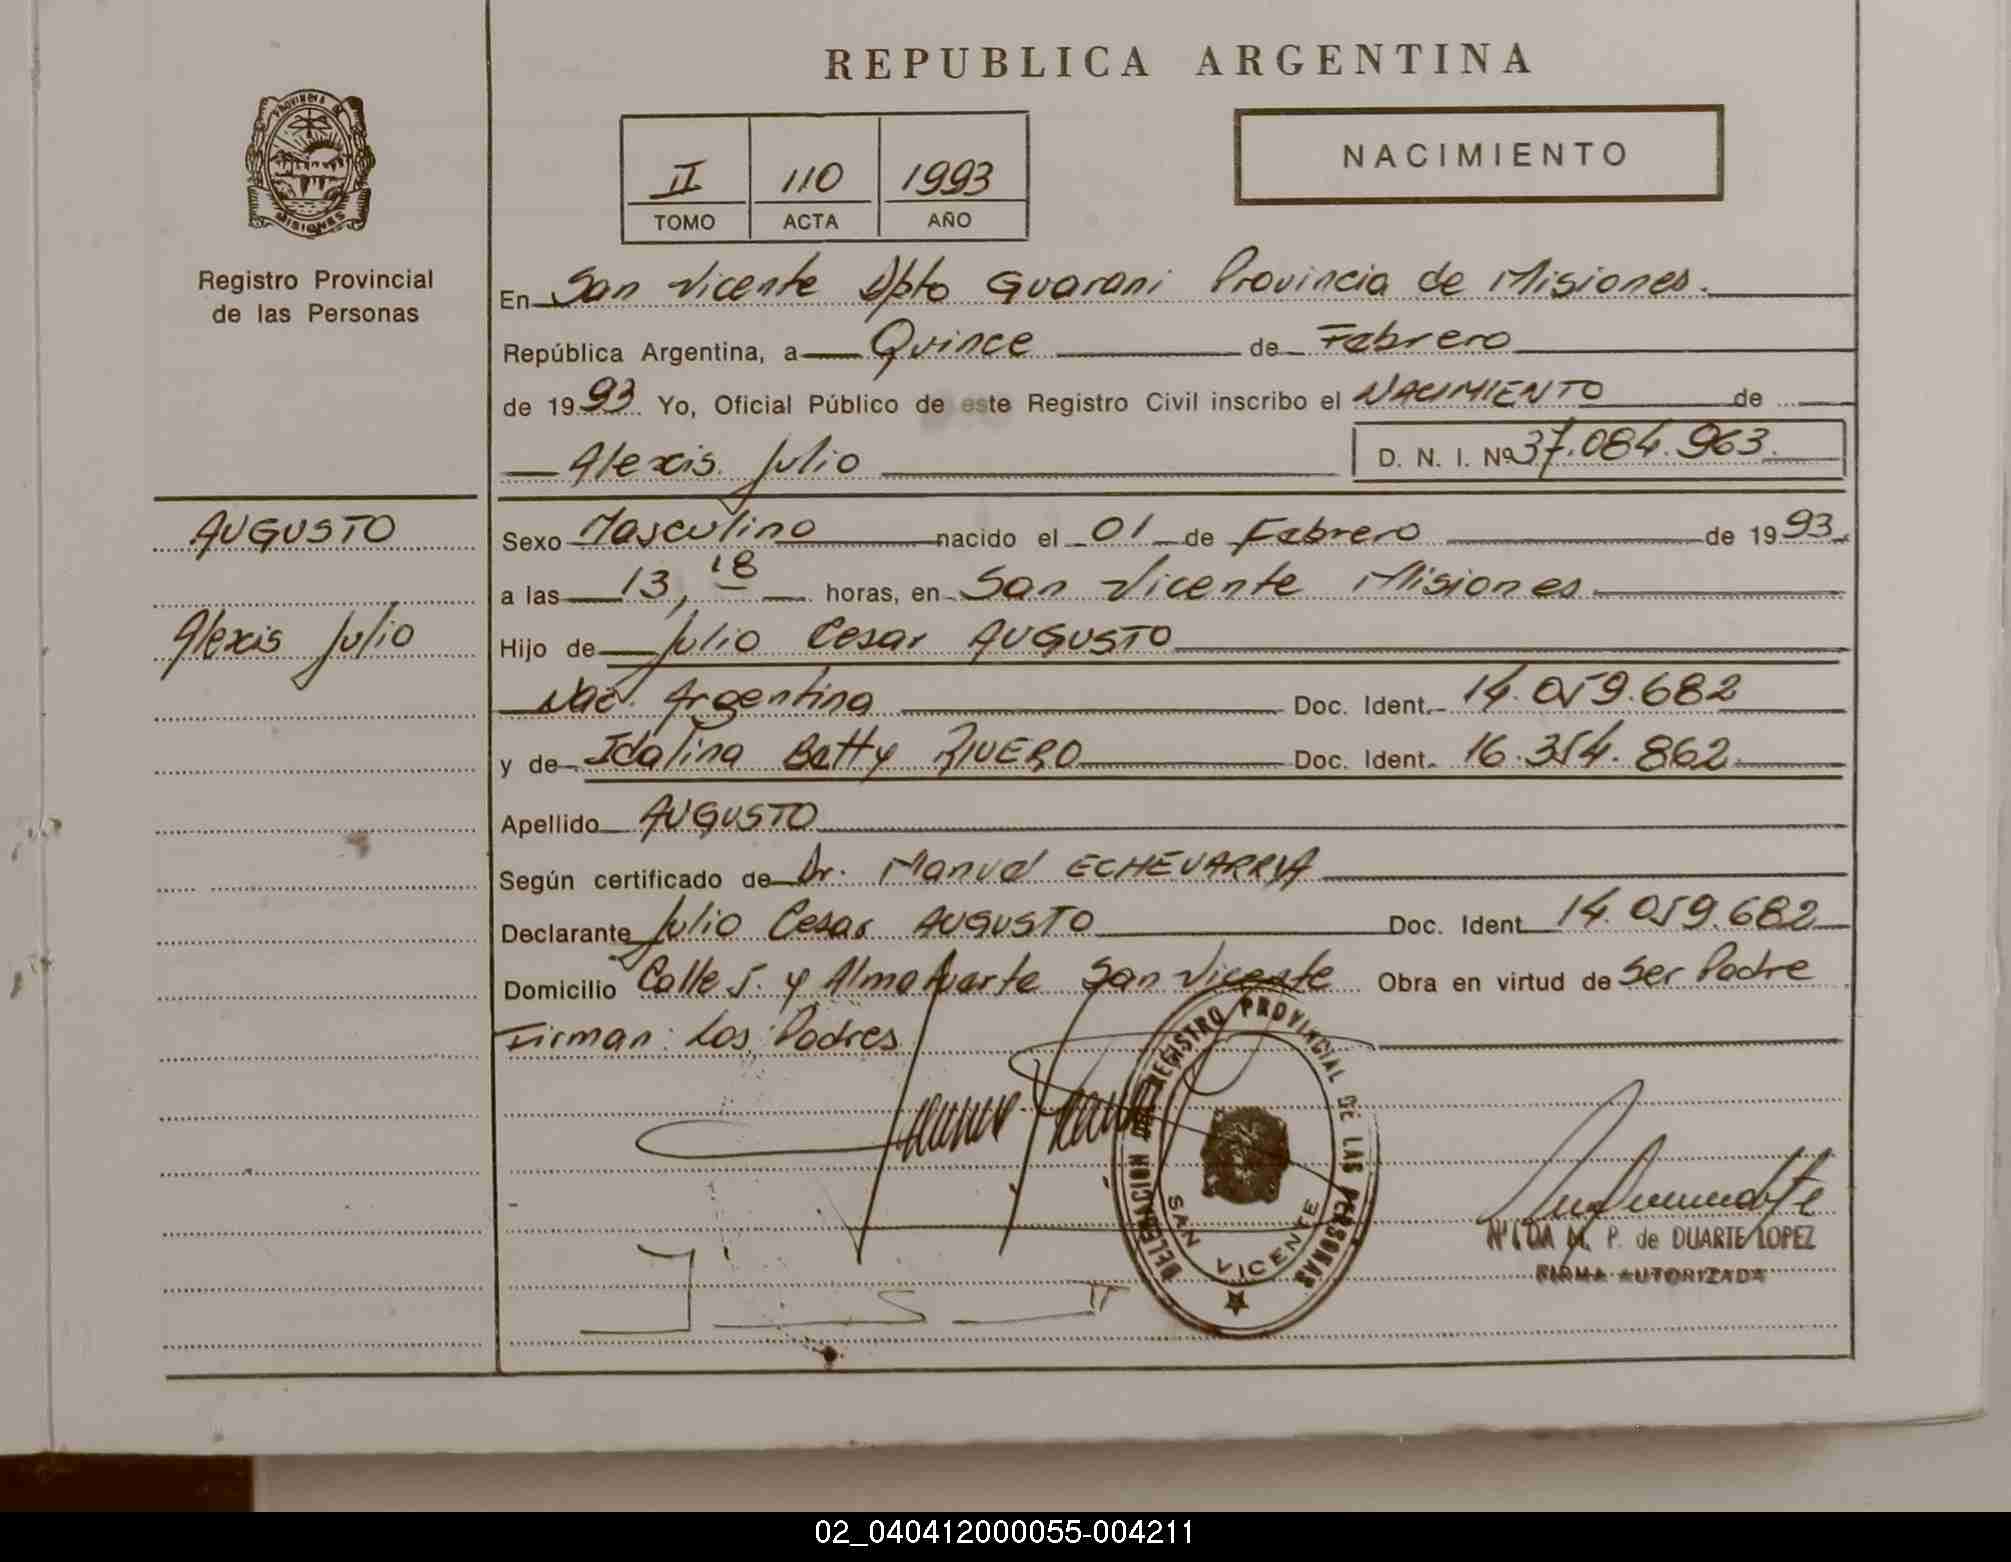 REPUBLICA ARGENTINA
PROVINCIA DE MISIONES
Registro Provincial
de las Personas
II 110 1993
TOMO ACTA AÑO
NACIMIENTO
En San Vicente Dpto Guarani Provincia de Misiones.
República Argentina, a Quince de Febrero
de 1993 Yo, Oficial Público de este Registro Civil inscribo el NACIMIENTO de
Alexis Julio D. N. I. Nº 37.084.963.
AUGUSTO
Alexis Julio
Sexo Masculino nacido el 01 de Febrero de 1993
a las 13,18 horas, en San Vicente Misiones
Hijo de Julio Cesar AUGUSTO
Nac. Argentina Doc. Ident. 14.059.682
y de Idalina Betty RIVERO Doc. Ident. 16.354.862
Apellido AUGUSTO
Según certificado de Dr. Manuel ECHEVARRIA
Declarante Julio Cesar AUGUSTO Doc. Ident 14.059.682
Domicilio Calle 5. y Almafuerte San Vicente Obra en virtud de Ser Padre
Firman: Los Padres
DELEGACION REGISTRO PROVINCIAL DE LAS PERSONAS
SAN VICENTE
M. P. de DUARTE LOPEZ
FIRMA AUTORIZADA
02_040412000055-004211